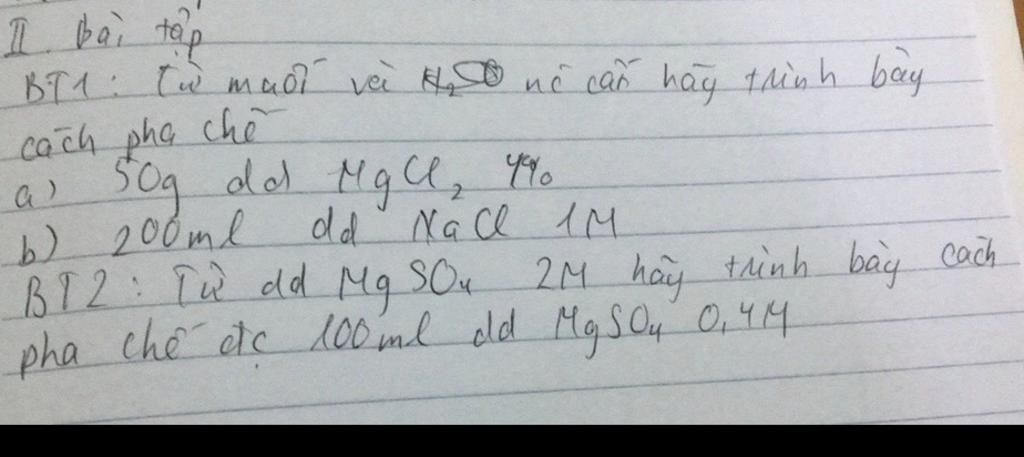 II. Bài tập
BT1: Từ muối và H₂O nc cất hãy trình bày
cách pha chế
a) 50g dd MgCl₂ 4%
b) 200ml dd NaCl 1M
BT2: Từ dd MgSO₄ 2M hãy trình bày cách
pha chế đc 100ml dd MgSO₄ 0,4M